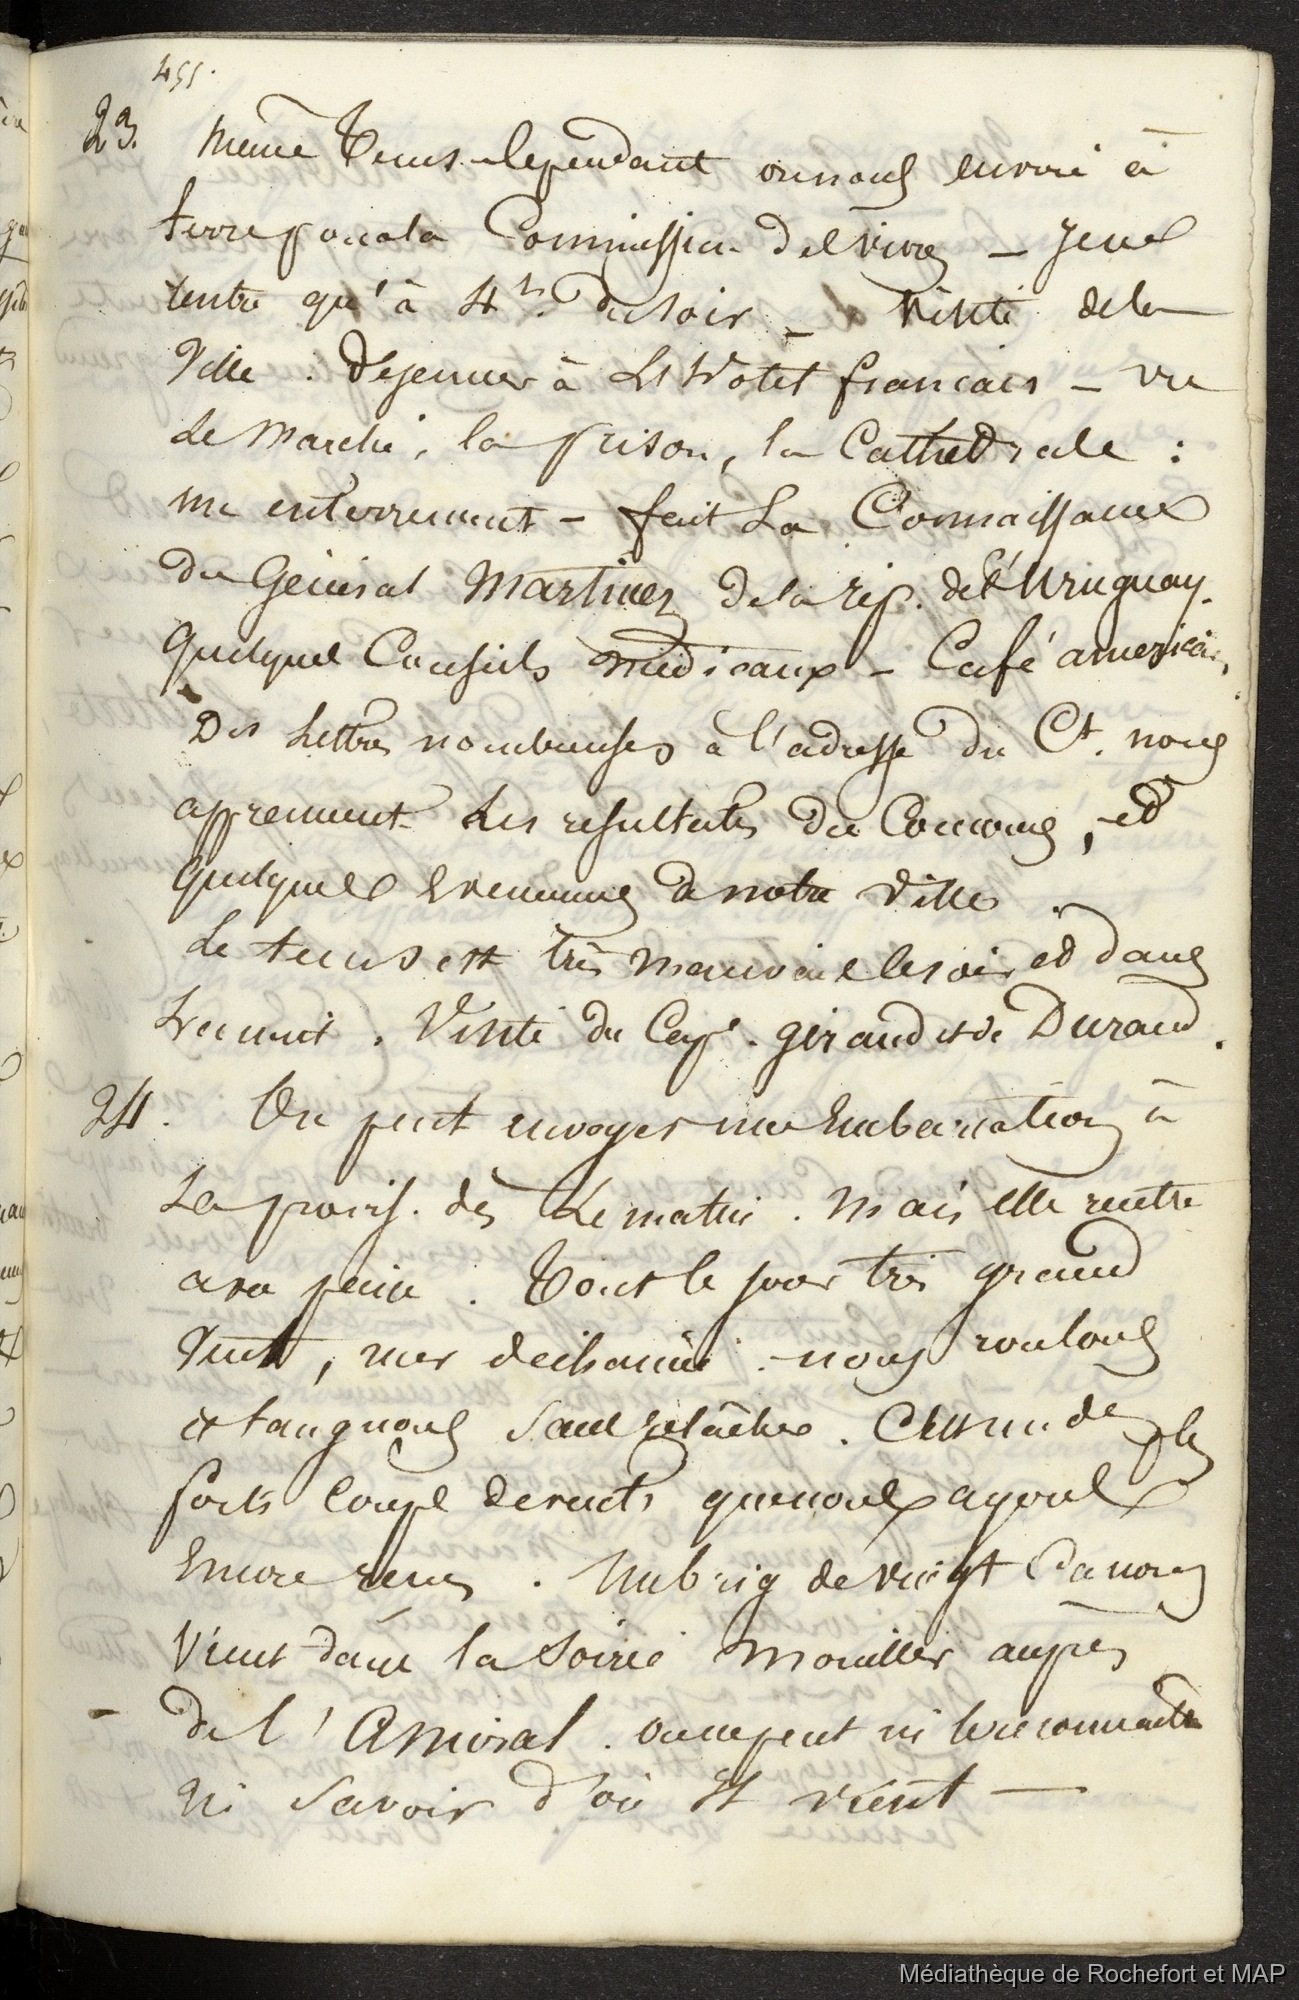 455.
23. même tems. Cependant on nous envoie à
terre pour la Commission des vivres – je ne
rentre qu'à 4h. du soir – visite de la
ville. Dejeuner à L'hotel français – vu
Le Marché, la prison, la Cathedrale :
un enterrement – fait La Connaissance
du Général Martinez de la rép. de l'Uruguay.
quelques Conseils médicaux – Café americain,
Des Lettres nombreuses à l'adresse du Ct. nous
apprennent Les resultats du Concours, et
quelques evenemens de notre ville
Le tems est très mauvais le soir et dans
La nuit. Visite du Cape. giraud et de Durand.
24. On peut envoyer une Embarcation à
La provis. dès Le matin. Mais elle rentre
à peine. Tout le jour très grand
Vent, mer dechainée. nous roulons
et tanguons sans relâche. C'est un des plus
forts coups de vents que nous ayons
Encore reçus. Un brig de vingt Canons
Vient dans la soirée mouiller auprès
de l'Amiral. on ne peut ni le reconnaitre
ni savoir d'où il vient —
Médiathèque de Rochefort et MAP